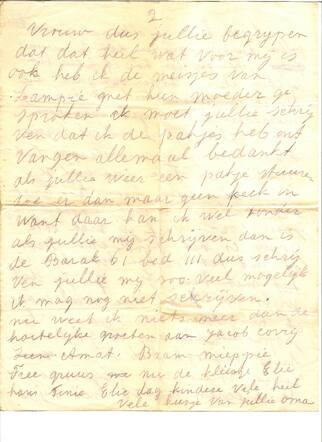 2
Vrouw dus jullie begrypen
dat dat heil wat voor my is
ook heb ik de meisjes van
Lampie met hun moeder ge
sproken ik moet jullie schrij
ven dat ik de pakjes heb ont
vangen allemaal bedankt
als jullie weer een patje sturen
doe er dan maar geen koek in
want daar kan ik wel zonder
als jullie mij schrijven dan is
de Barak 61 bed III dus schrij
ven jullie mij zoo veel mogelijk
ik mag nog niet schrijven.
nu weet ik niets meer dan de
hartelijke groeten aan Jacob
Amat. Bram mieppie
de kleine Elie
hans Tinie Elie dag kindere vele heil
Vele kusje van jullie oma